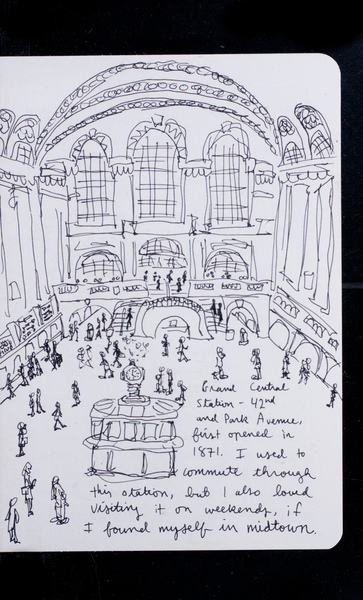 Grand Central
Station - 42nd
and Park Avenue,
first opened in
1871. I used to
commute through
this station, but I also loved
visiting it on weekends, if
I found myself in midtown.